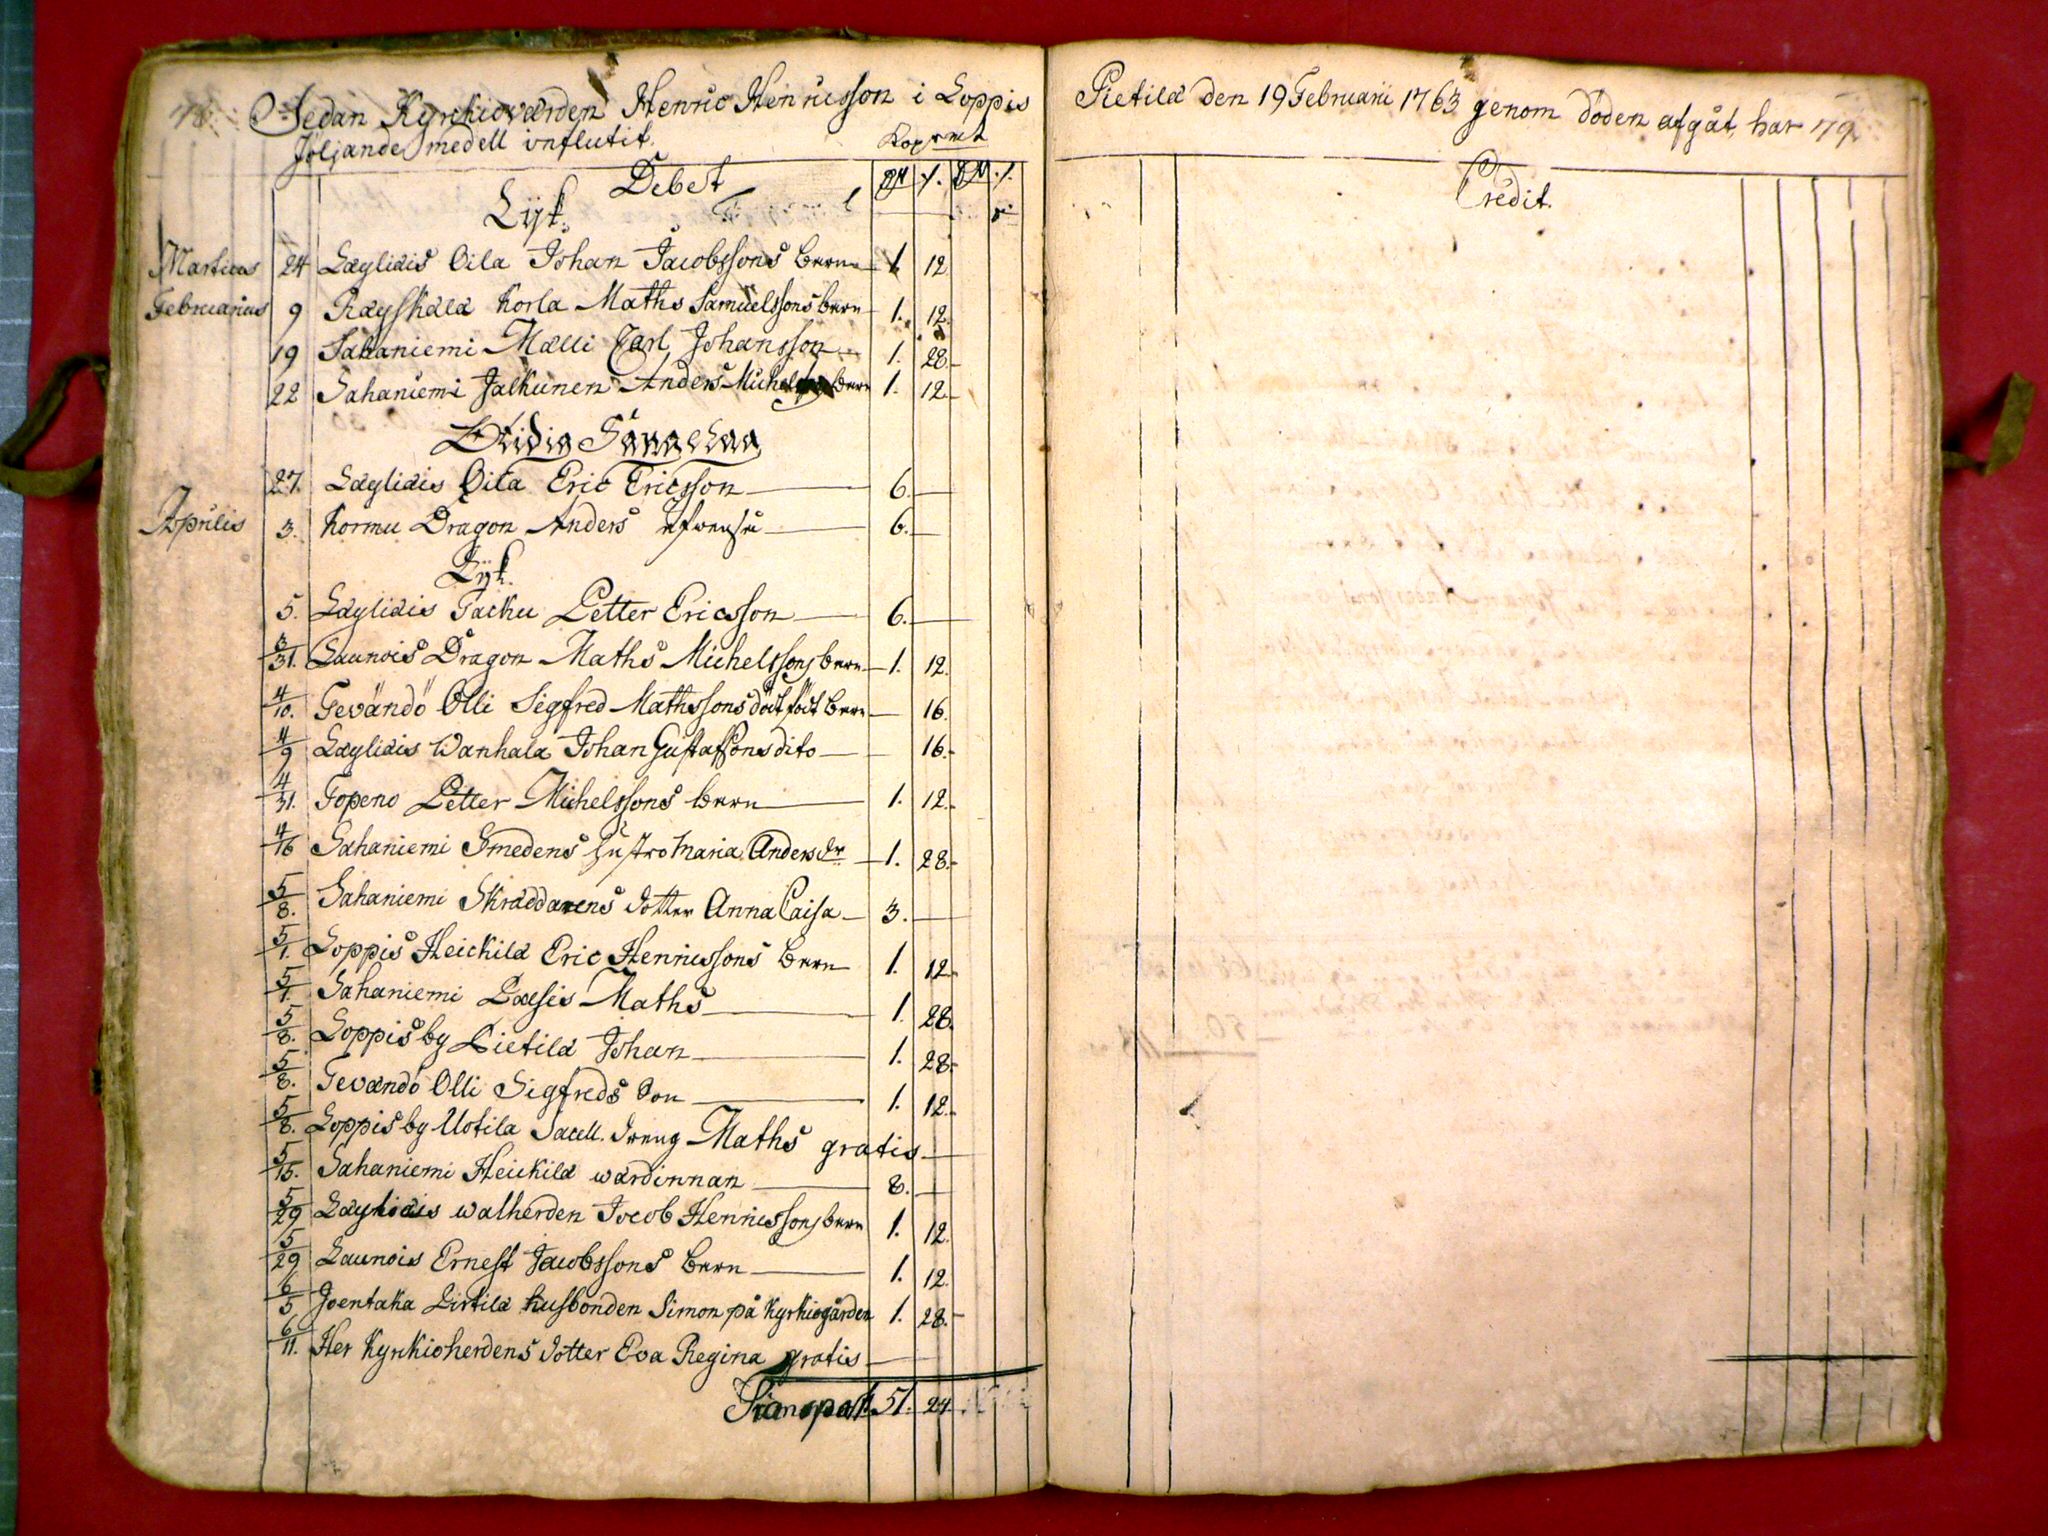 78. Sedan Kyrkiowärden Henric Henricsson i Loppis
följande medell influtit.
Kop:mt
Debet
Lijk.
Martius 24 Läyliäis Oila Johan Jacobssons barn 1. 12
Februarius 9 Räyskälä Korla Maths Samuelssons barn 1. 12.
19 Sahaniemi Mälli Carl Johansson 1. 28.
22 Sahaniemi Jalkunen Anders barn 1. 12.
27. Läyliäis Oila Eric Ericsson 6.
Aprilis 3. Kormu Dragon Anders 6.
Lijk.
5. Läyliäis Tacku Petter Ericsson 6.
3/31. Launois Dragon Maths Michelssons barn 1. 12.
4/10. Tevändö Olli Sigfred Mathssons död född barn 16.
4/9 Läyliäis Wanhala Johan Gustafsons dito 16.
4/31. Topeno Petter Michelssons barn 1. 12.
4/16 Sahaniemi Smedens hustro Maria Andersdr 1. 28.
5/8. Sahaniemi Skräddarens dotter Anna Caisa 3.
5/1. Loppis Heickilä Eric Henricssons barn 1. 12.
5/1. Sahaniemi Maths 1. 28.
5/8. Loppisby Pietilä Johan 1. 28.
5/8. Tevändö Olli Sigfreds Son 1. 12.
5/8. Loppisby Uotila Sacell. dreng Maths gratis
5/15. Sahaniemi Heickilä wärdinnan 8.
5/29 Läyliäis walherden Jacob Henricssons barn 1. 12.
5/29 Launois Ernest Jacobssons barn 1. 12.
6/5 Joentaka husbonden Simon på Kyrkiogården 1. 28.
6/11. Her Kyrckioherdens dotter Eva Regina gratis
Transport 51. 24.
Pietilä den 19 Februarii 1763 genom döden afgåt, har 79.
Credit.